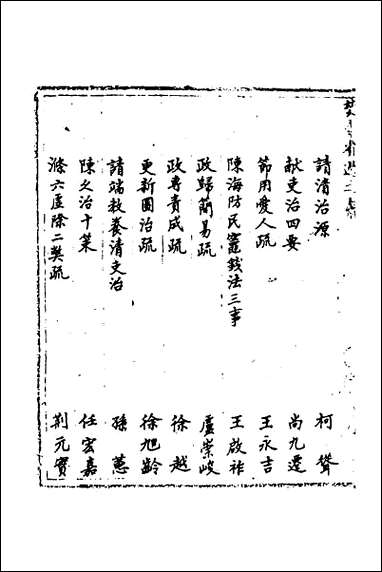 請清治源 柯聳
献吏治四要 尚九遷
節用愛人疏 王永吉
陳海防民竈錢法三事 王啟祚
政歸簡易疏 盧崇峻
政專責成疏 徐越
更新圖治疏 徐旭齡
請端教養清文治 孫蕙
陳久治十策 任宏嘉
滌六虛除二獘疏 荆元實